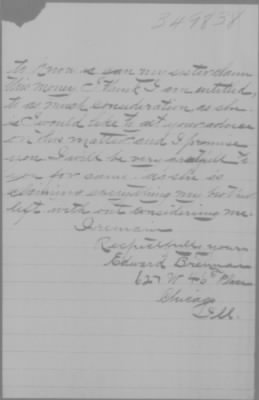 349838
to know is can my sister claim
this money. I think I am entitled,
to as much consideration as she
is I would like to get your advise
on this matter, and I promise
you I will be very grateful to
you for same. as she is
claiming everything my brother
left with out considering me.
I remain
Respectfully yours
Edward Brennan
627 W 46th Place
Chicago
Ill.